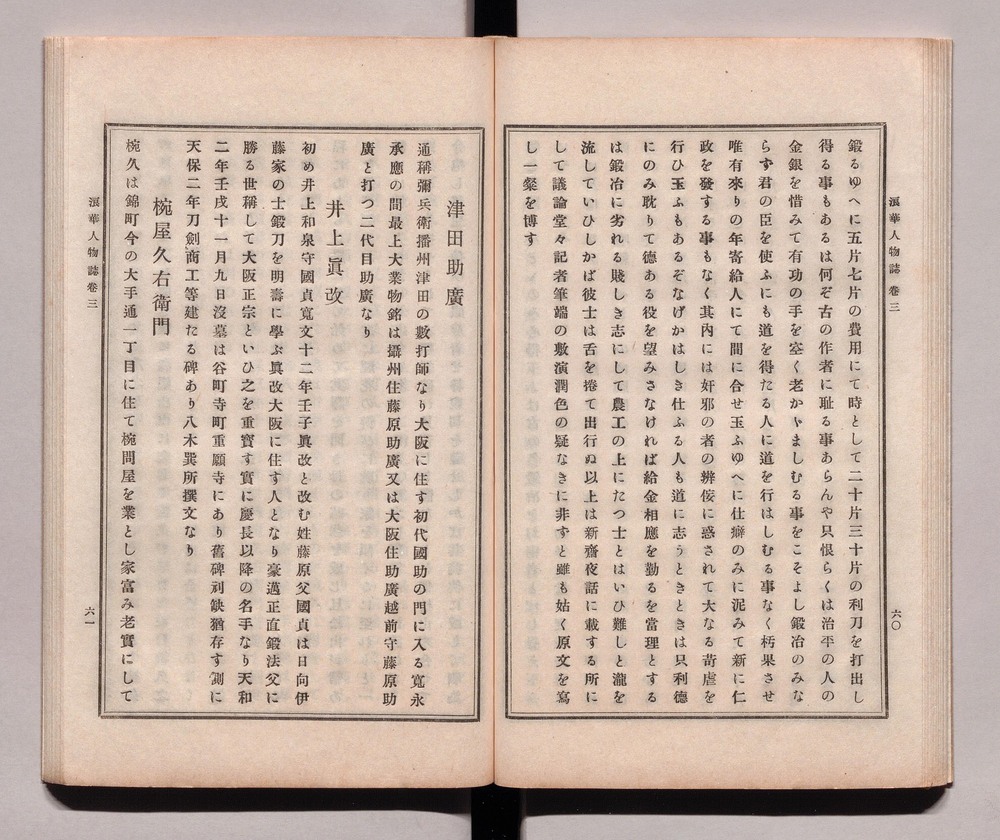 浪華人物誌 卷三
鍛るゆへに五片七片の費用にて時として二十片三十片の利刀を打出し
得る事もあるは何ぞ古の作者に耻る事あらんや只恨らくは治平の人の
金銀を惜みて有功の手を空く老かやましむる事をこそよし鍛冶のみな
らず君の臣を使ふにも道を得たる人に道を行はしむる事なく栝果させ
唯有來りの年寄給人にて間に合せ玉ふゆへに仕癖のみに泥みて新に仁
政を發する事もなく其內には奸邪の者の辨侫に惑されて大なる苛虐を
行ひ玉ふもあるぞなげかはしき仕ふる人も道に志うときときは只利德
にのみ耽りて德ある役を望みさなければ給金相應を勤るを當理とする
は鍛冶に劣れる賤しき志にして農工の上にたつ士とはいひ難しと瀧を
流していひしかば彼士は舌を捲て出行ぬ以上は新齋夜話に載する所に
して議論堂々記者筆端の敷演潤色の疑なきに非ずと雖も姑く原文を寫
し一粲を博す
六〇
浪華人物誌 卷三
津田助廣
通稱彌兵衛播州津田の數打師なり大阪に住す初代國助の門に入る寬永
承應の間最上大業物銘は攝州住藤原助廣又は大阪住助廣越前守藤原助
廣と打つ二代目助廣なり
井上眞改
初め井上和泉守國貞寬文十二年壬子眞改と改む姓藤原父國貞は日向伊
藤家の士鍛刀を明壽に學ぶ眞改大阪に住す人となり豪邁正直鍛法父に
勝る世稱して大阪正宗といひ之を重寶す實に慶長以降の名手なり天和
二年壬戌十一月九日沒墓は谷町寺町重願寺にあり舊碑刓缺猶存す側に
天保二年刀劍商工等建たる碑あり八木巽所撰文なり
椀屋久右衛門
椀久は錦町今の大手通一丁目に住て椀問屋を業とし家富み老實にして
六一